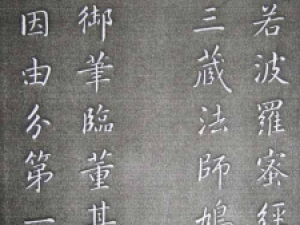 若波羅蜜經
三藏法師鳩
御筆臨董其
因由分第一